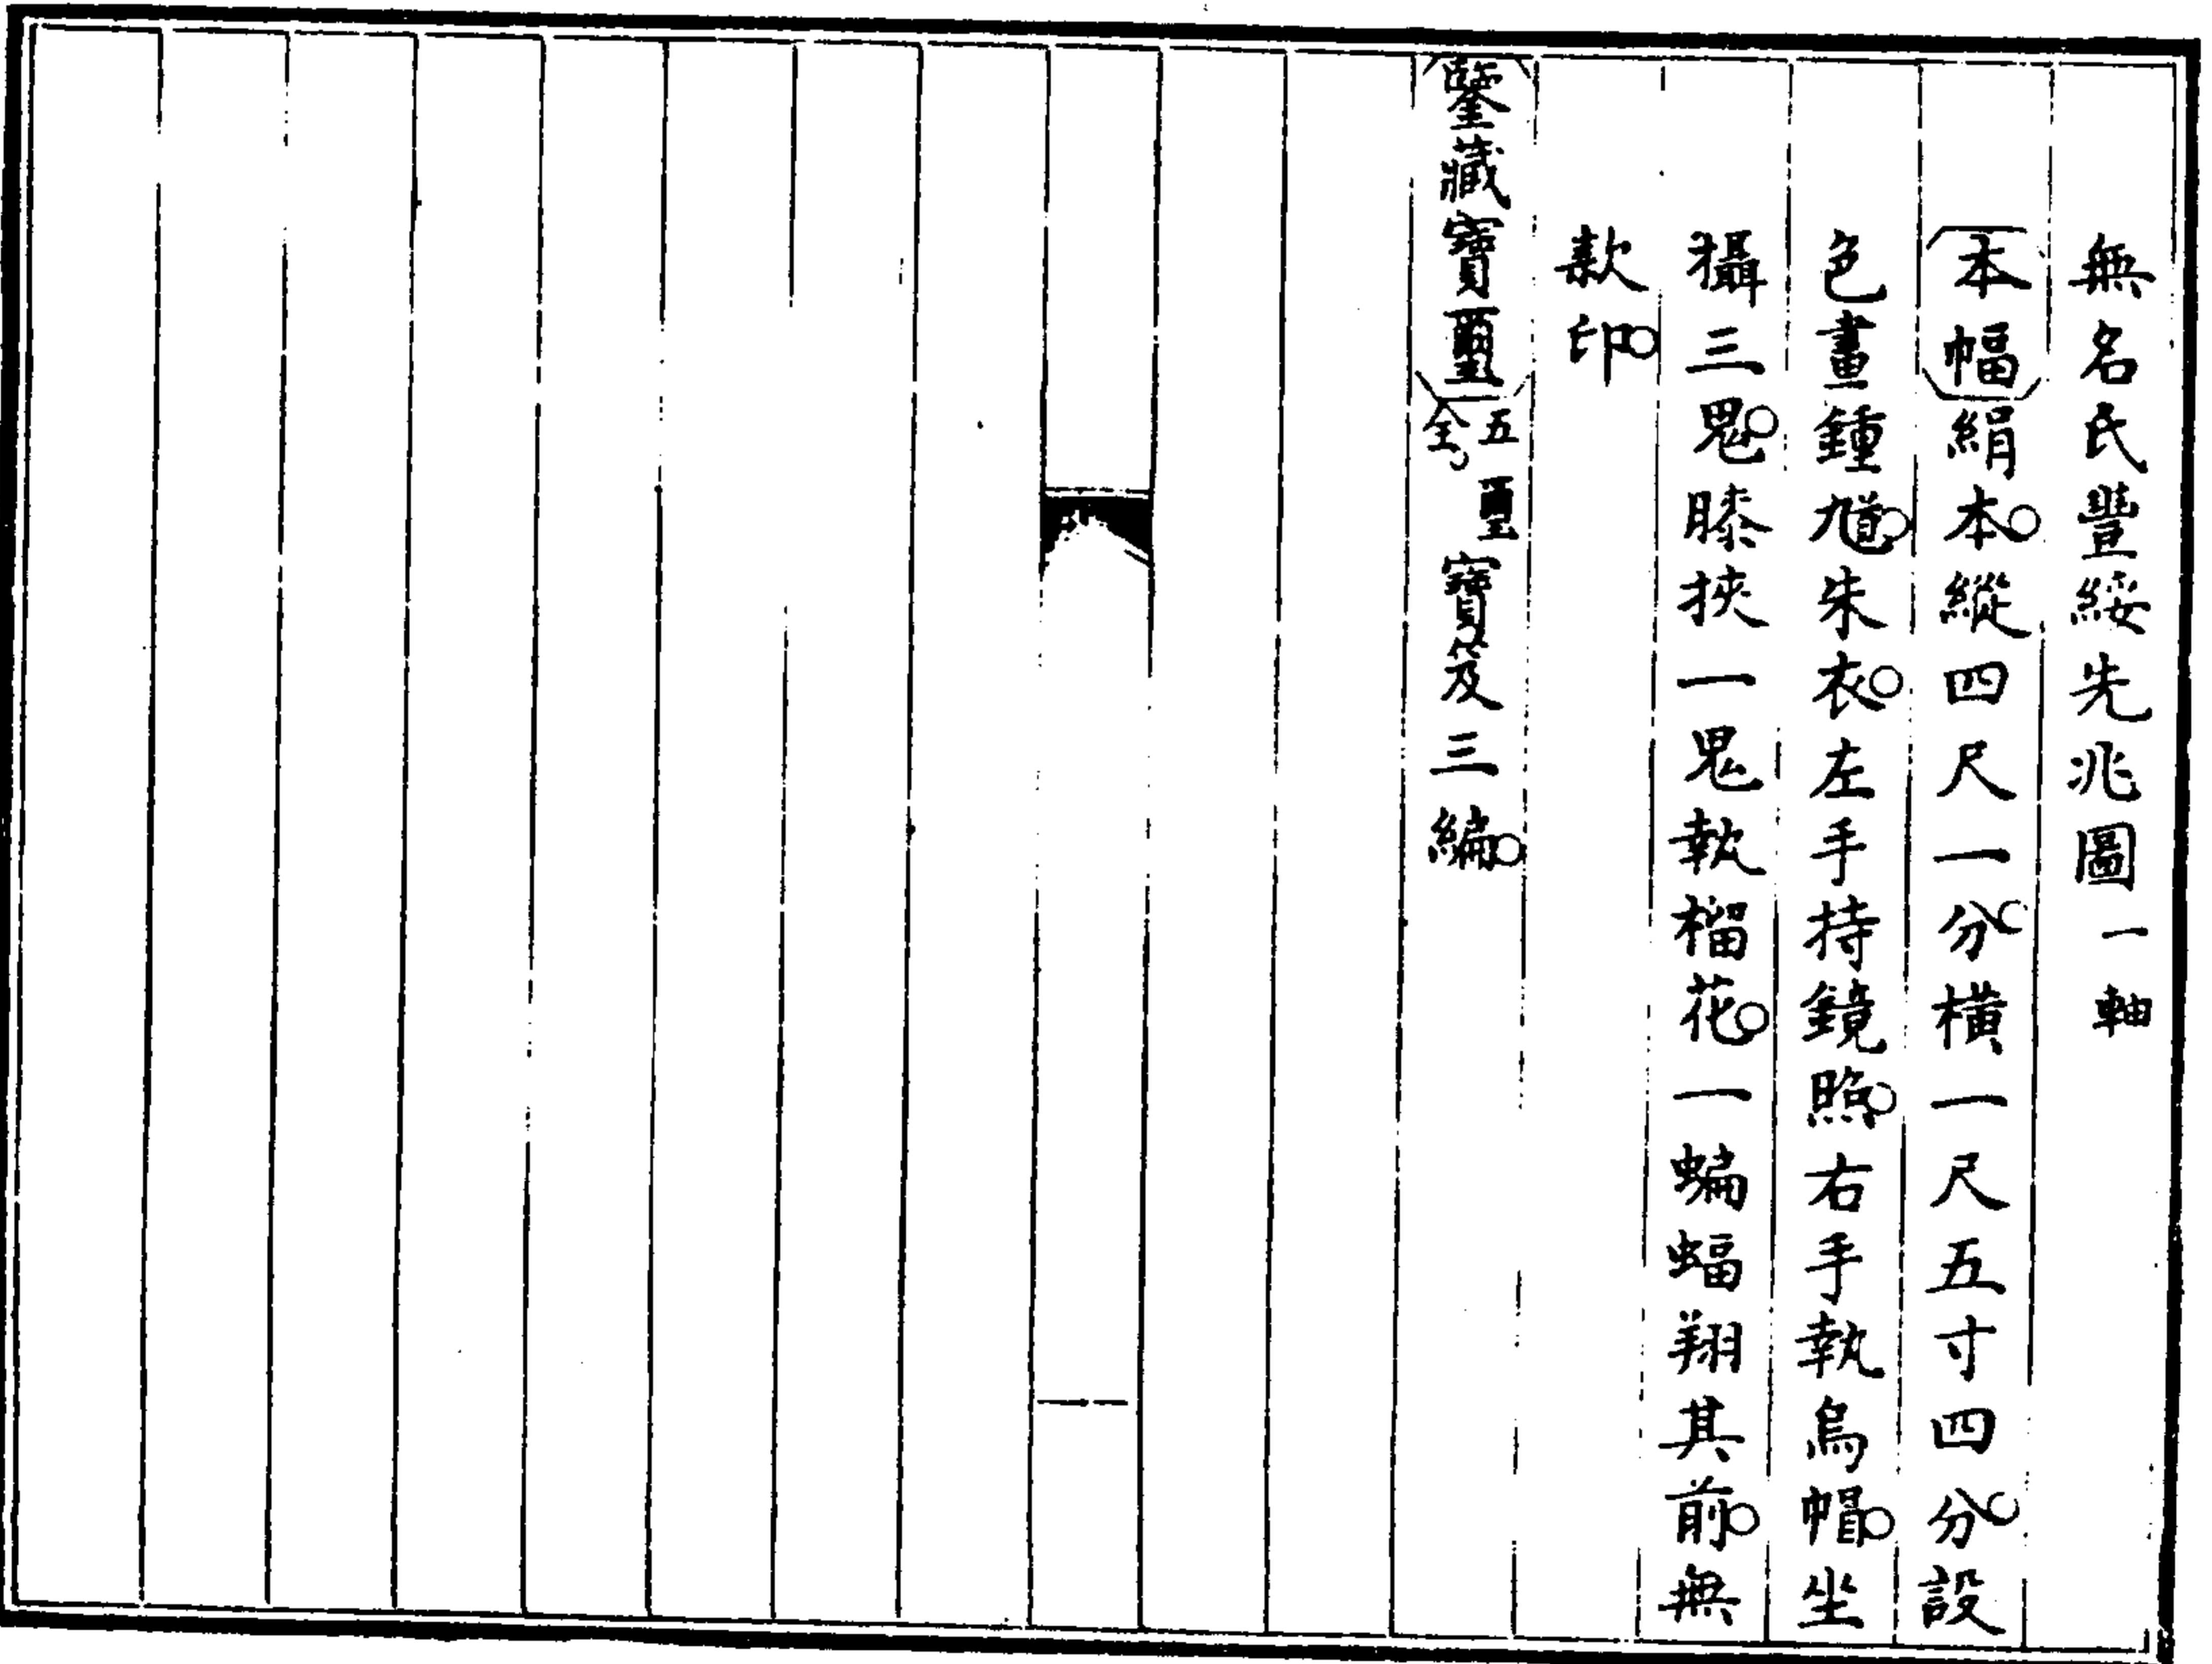 無名氏豐綏先兆圖一軸
本幅絹本縱四尺一分橫一尺五寸四分設
色畫鍾馗朱衣左手持鏡照右手執烏帽坐
攝三鬼膝挾一鬼執榴花一蝙蝠翔其前無
款印
鑒藏寶璽五璽全寶笈三編